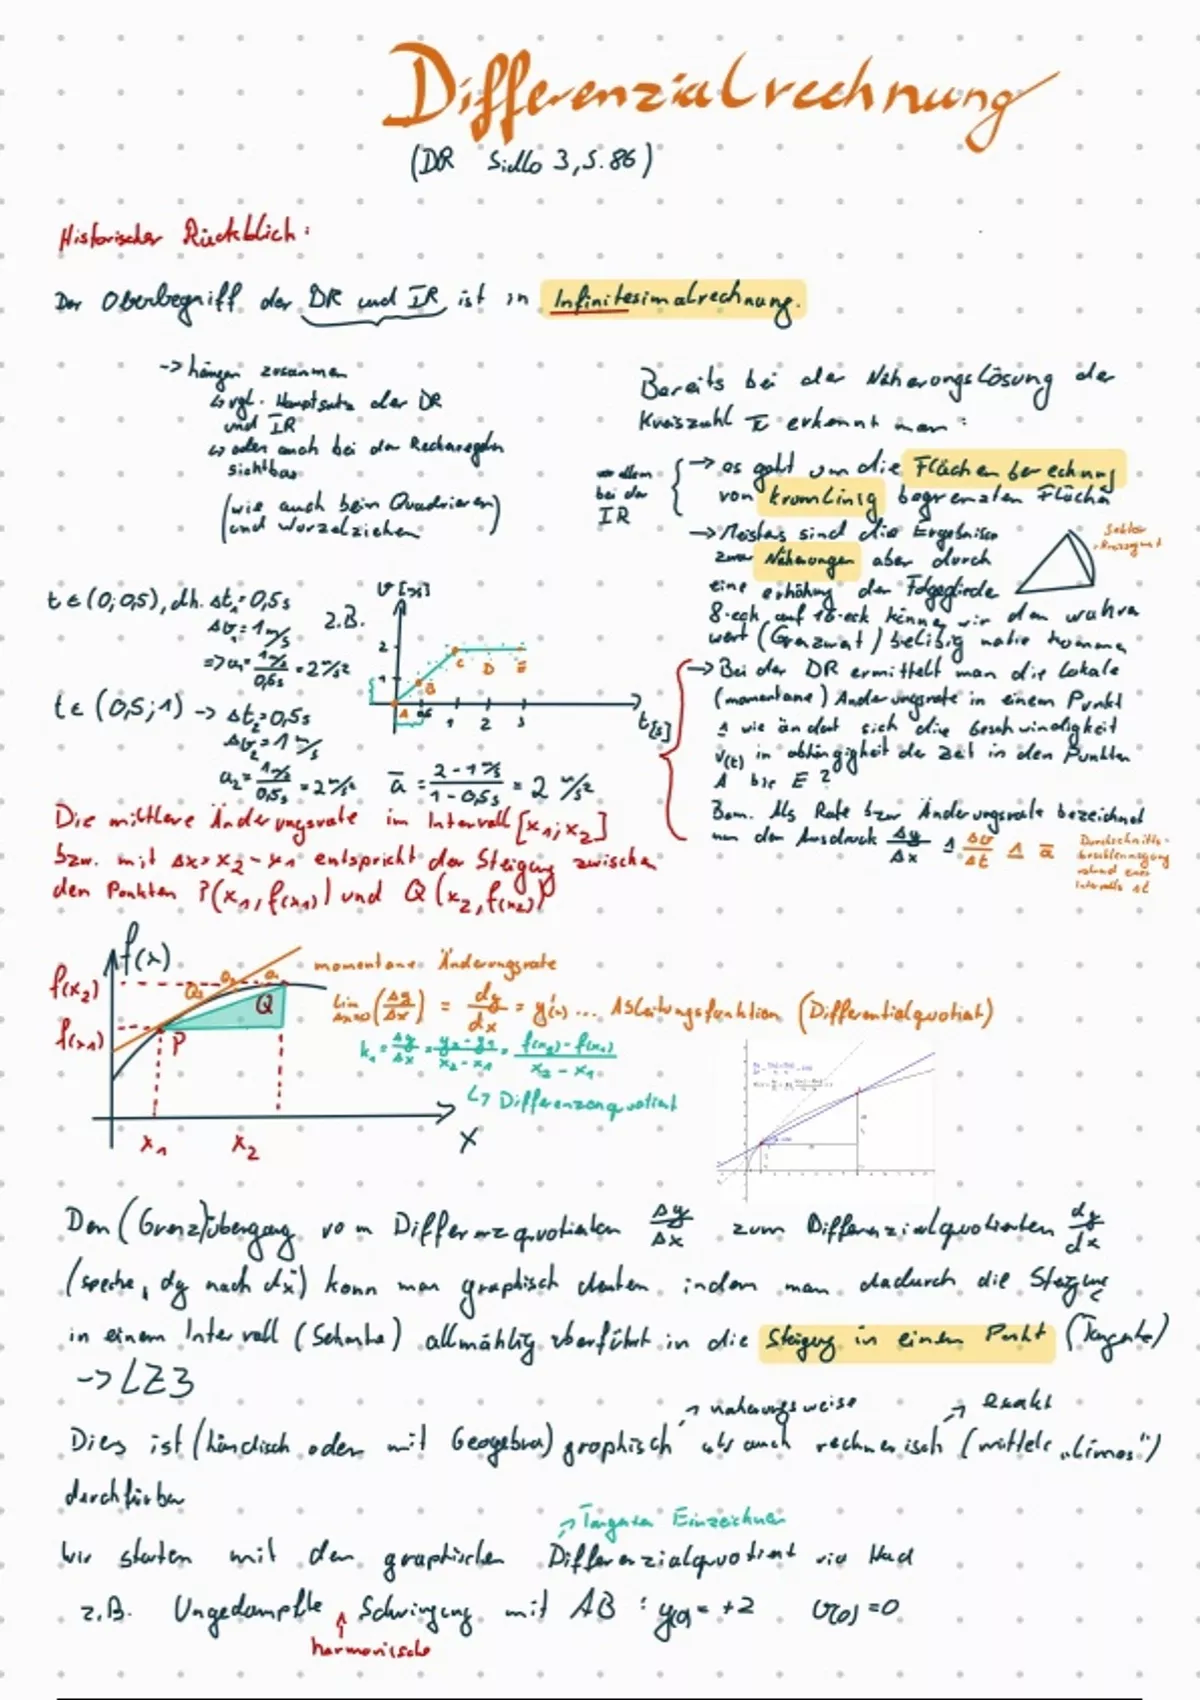 Differenzialrechnung
(DR Sidlo 3, S. 86)
Historischer Rückblich:
Der Oberbegriff der DR und IR ist in Infinitesimalrechnung.
-> hängen zusammen
↳ vgl. Hauptsatz der DR
und IR
↳ oder auch bei den Rechenregeln
sichtbar
(wie auch beim Quadrieren
und Wurzelziehen)
Bereits bei der Näherungslösung der
Kreiszahl π erkennt man:
vor allem
bei der
IR
-> es geht um die Flächenberechnung
von krumlinig begrenzten Flächen
-> Meistens sind die Ergebnisse
zwar Näherungen aber durch
eine erhöhung der Folgeglieder
8-eck auf 16-eck können wir den wahren
wert (Grenzwert) belibig nahe kommen
Sektor
Kreissegment
t ∈ (0; 0,5), dh. Δt₁ = 0,5s
Δv₁ = 1 m/s
=> a₁ = 1 m/s / 0,5s = 2 m/s²
t ∈ (0,5; 1) -> Δt₂ = 0,5s
Δv₂ = 1 m/s
a₂ = 1 m/s / 0,5s = 2 m/s²
z.B.
2
1
A
B
C
D
E
0,5
1
2
3
t[s]
ā = 2 - 1 m/s / 1 - 0,5s = 2 m/s²
-> Bei der DR ermittelt man die lokale
(momentane) Änderungsrate in einem Punkt
≙ wie ändert sich die Geschwindigkeit
v(t) in abhängigkeit der Zeit in den Punkten
A bis E?
Bem. Als Rate bzw Änderungsrate bezeichnet
man den Ausdruck Δy/Δx ≙ Δv/Δt ≙ ā
Durchschnitts-
beschleunigung
intervalls Δt
Die mittlere Änderungsrate im Intervall [x₁; x₂]
bzw. mit Δx = x₂ - x₁ entspricht der Steigung zwischen
den Punkten P(x₁, f(x₁)) und Q(x₂, f(x₂))
f(x)
f(x₂)
f(x₁)
P
Q
x₁
x₂
x
momentane Änderungsrate
lim Δx→0 (Δy/Δx) = dy/dx = y'(x) ... Ableitungsfunktion (Differentialquotient)
k₁ = Δy/Δx = y₂ - y₁ / x₂ - x₁ = f(x₂) - f(x₁) / x₂ - x₁
↳ Differenzenquotient
Den (Grenz)übergang vom Differenzquotienten Δy/Δx zum Differenzialquotienten dy/dx
(spreche "dy nach dx") kann man graphisch deuten, indem man dadurch die Steigung
in einem Intervall (Sekante) allmählig überführt in die Steigung in einem Punkt (Tangente)
-> LZ3
näherungsweise
exakt
Dies ist (händisch oder mit Geogebra) graphisch als auch rechnerisch (mittels "Limes")
durchführbar
Tangenten Einzeichnen
Wir starten mit den graphischen Differenzialquotient via Hand
z.B. Ungedämpfte Schwingung mit AB: y(0) = +2 v(0) = 0
harmonische